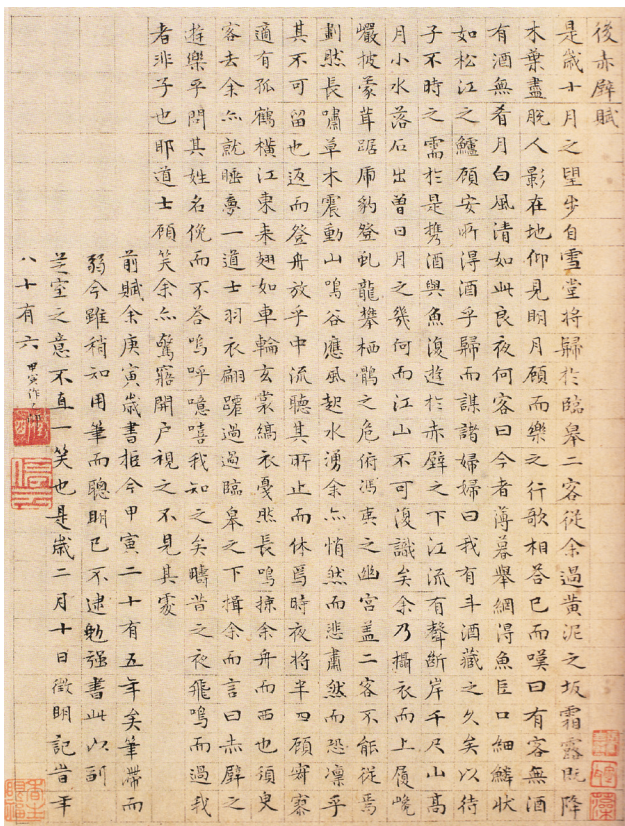 後赤壁賦
是歲十月之望步自雪堂將歸於臨皋二客從余過黃泥之坂霜露既降
木葉盡脫人影在地仰見明月顧而樂之行歌相答已而嘆曰有客無酒
有酒無肴月白風清如此良夜何客曰今者薄暮舉網得魚巨口細鱗狀
如松江之鱸顧安所得酒乎歸而謀諸婦婦曰我有斗酒藏之久矣以待
子不時之需於是攜酒與魚復遊於赤壁之下江流有聲斷岸千尺山高
月小水落石出曾日月之幾何而江山不可復識矣余乃攝衣而上履巉
巖披蒙茸踞虎豹登虬龍攀栖鶻之危俯馮夷之幽宮蓋二客不能從焉
劃然長嘯草木震動山鳴谷應風起水湧余亦悄然而悲肅然而恐凜乎
其不可留也返而登舟放乎中流聽其所止而休焉時夜將半四顧寂寥
適有孤鶴橫江東來翅如車輪玄裳縞衣戛然長鳴掠余舟而西也須臾
客去余亦就睡夢一道士羽衣翩躚過過臨皋之下揖余而言曰赤壁之
遊樂乎問其姓名俛而不答嗚呼噫嘻我知之矣疇昔之夜飛鳴而過我
者非子也耶道士顧笑余亦驚寤開戶視之不見其處
前賦余庚寅歲書拒今甲寅二十有五年矣筆滯而
弱今雖稍知用筆而聰明已不逮勉強書此以副
芝室之意不直一笑也是歲二月十日徵明記旹年
八十有六
甲寅作